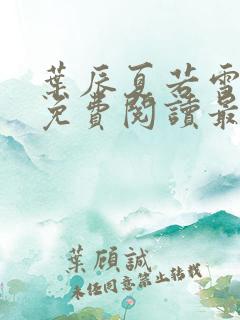 葉辰夏若雪
免費閱讀最
葉顧誠
未经同意禁止转载